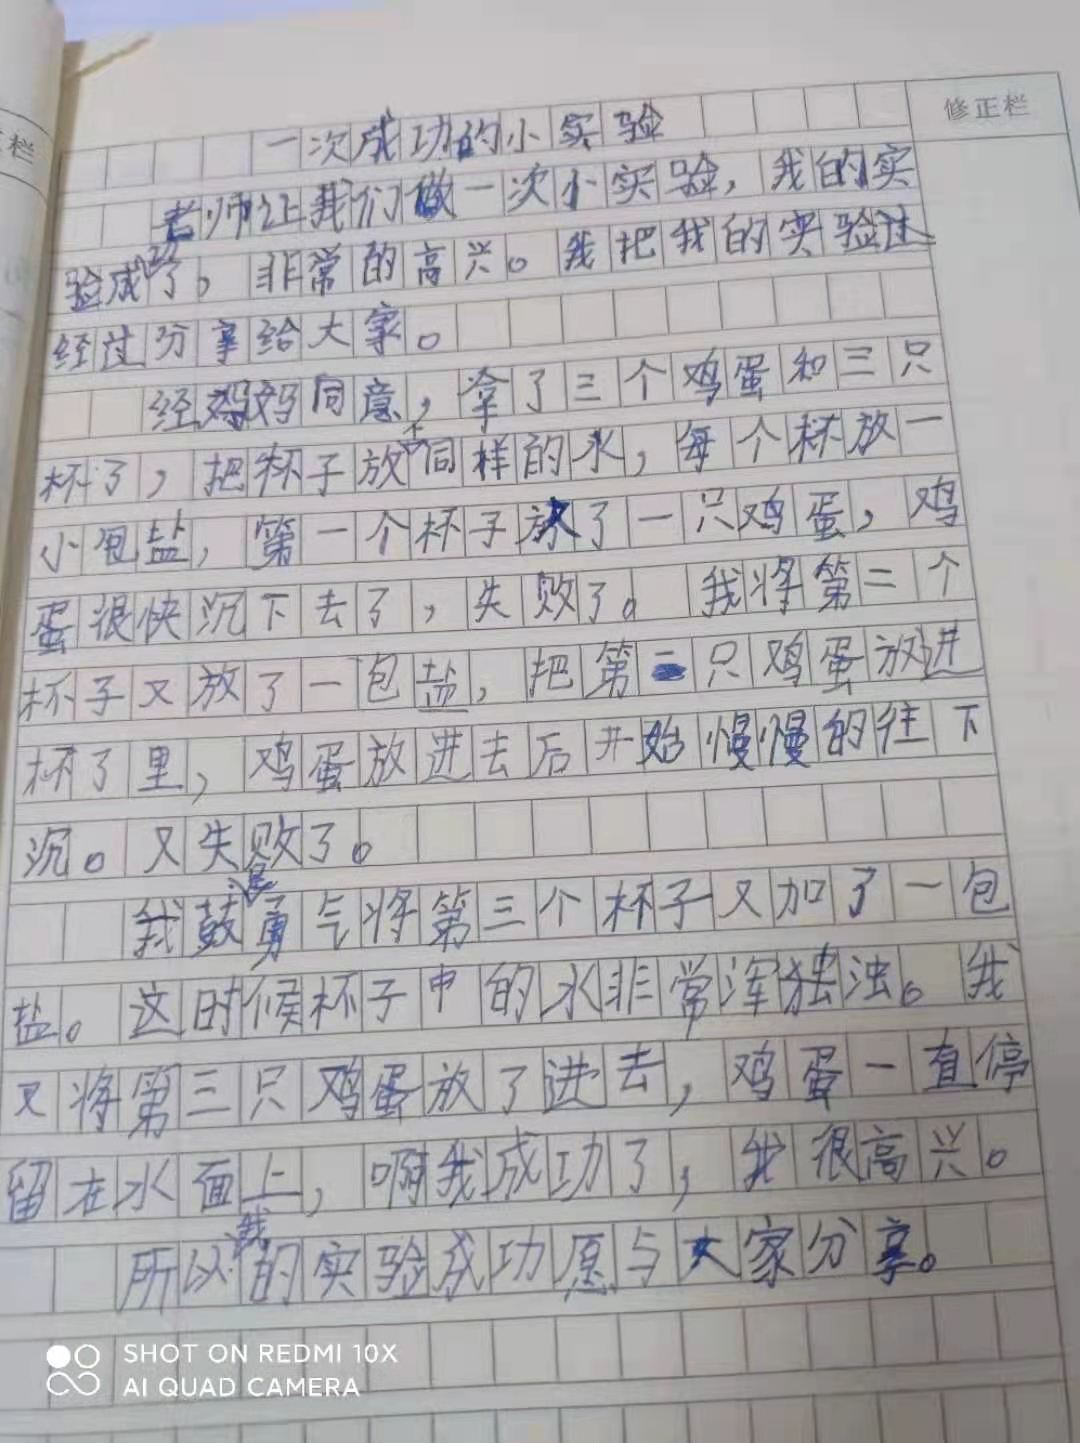 正栏
修正栏
一次成功的小实验
老师让我们做一次小实验，我的实
验成功了。非常的高兴。我把我的实验过
经过分享给大家。
经妈妈同意，拿了三个鸡蛋和三只
杯了，把杯子放不同样的水，每个杯放一
小包盐，第一个杯子放了一只鸡蛋，鸡
蛋很快沉下去了，失败了。我将第二个
杯子又放了一包盐，把第二只鸡蛋放进
杯了里，鸡蛋放进去后开始慢慢的往下
沉。又失败了。
我鼓勇气将第三个杯子又加了一包
盐。这时候杯子中的水非常浑独浊。我
又将第三只鸡蛋放了进去，鸡蛋一直停
留在水面上，啊我成功了，我很高兴。
所以我的实验成功愿与大家分享。
SHOT ON REDMI 10X
AI QUAD CAMERA